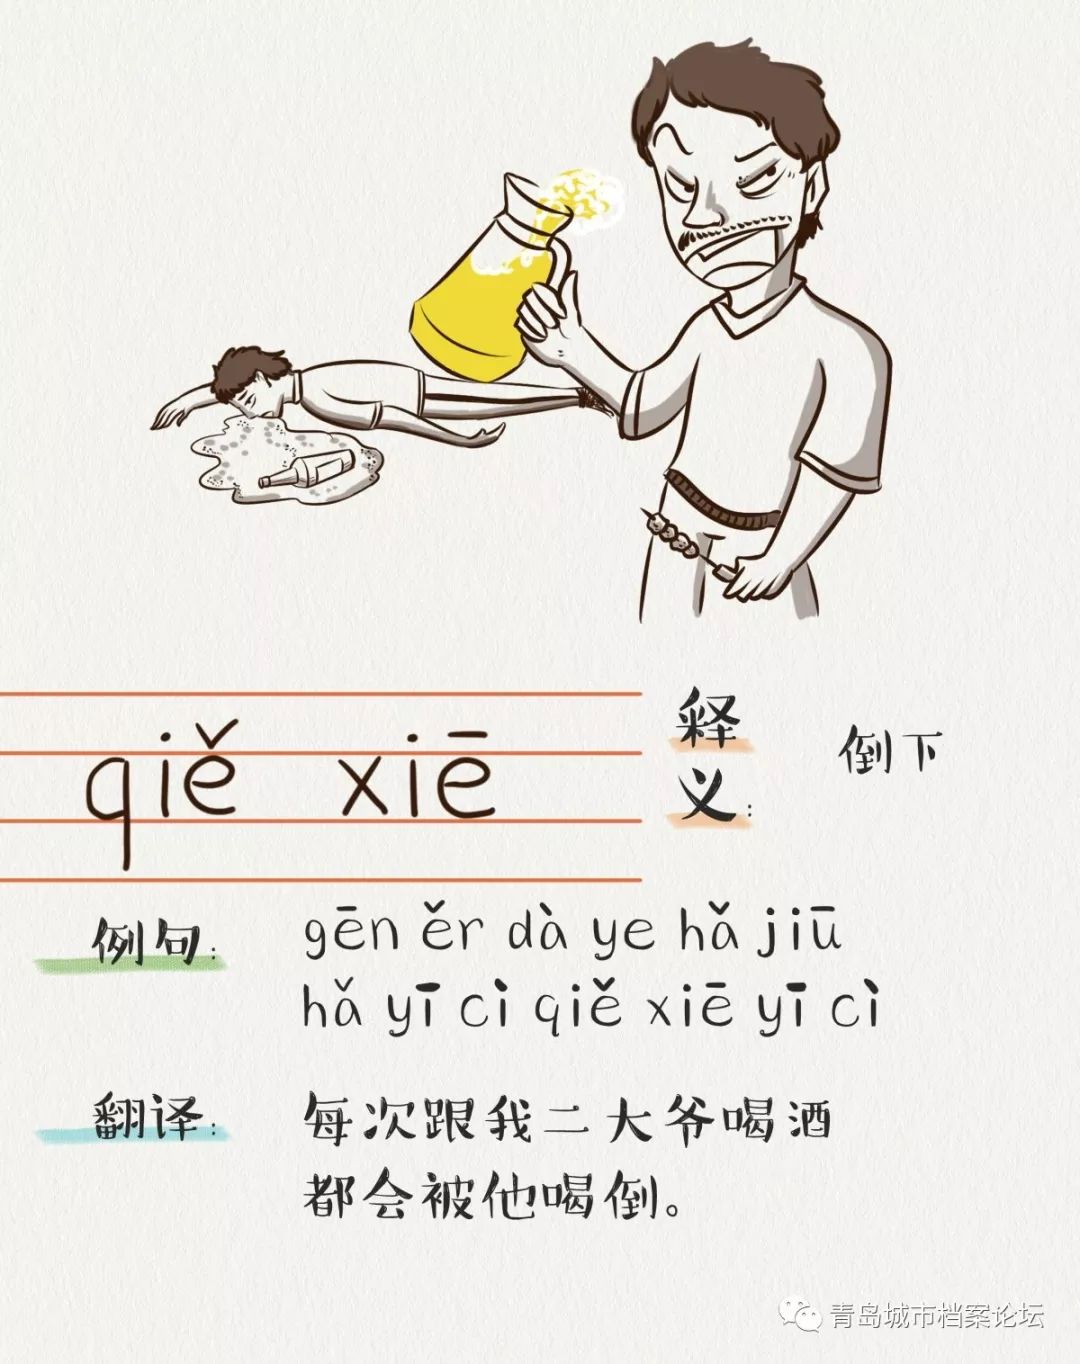 qiě xiē
释义：
倒下
例句：
gēn ěr dà ye hǎ jiū
hǎ yī cì qiě xiē yī cì
翻译：
每次跟我二大爷喝酒
都会被他喝倒。
青岛城市档案论坛